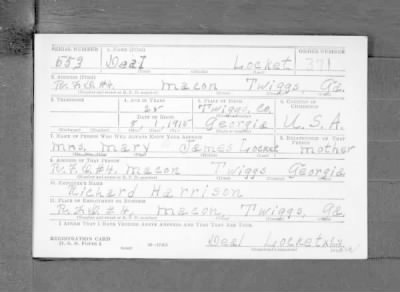 SERIAL NUMBER 1. NAME (Print) ORDER NUMBER
653 Deal Locket 371
2. ADDRESS (Print)
R.F.D. #4. macon Twiggs, Ga.
3. TELEPHONE 4. AGE IN YEARS 5. PLACE OF BIRTH 6. COUNTRY OF CITIZENSHIP
25 Twiggs, Co.
DATE OF BIRTH
1 1915 Georgia U.S.A.
7. NAME OF PERSON WHO WILL ALWAYS KNOW YOUR ADDRESS 8. RELATIONSHIP OF THAT PERSON
mrs. mary James Locket mother
9. ADDRESS OF THAT PERSON
R.F.D. #4. macon Twiggs Georgia
10. EMPLOYER'S NAME
Richard Harrison
11. PLACE OF EMPLOYMENT OR BUSINESS
R.F.D. #4. macon, Twiggs, Ga.
I AFFIRM THAT I HAVE VERIFIED ABOVE ANSWERS AND THAT THEY ARE TRUE.
REGISTRATION CARD
D. S. S. Form 1
Deal Locket